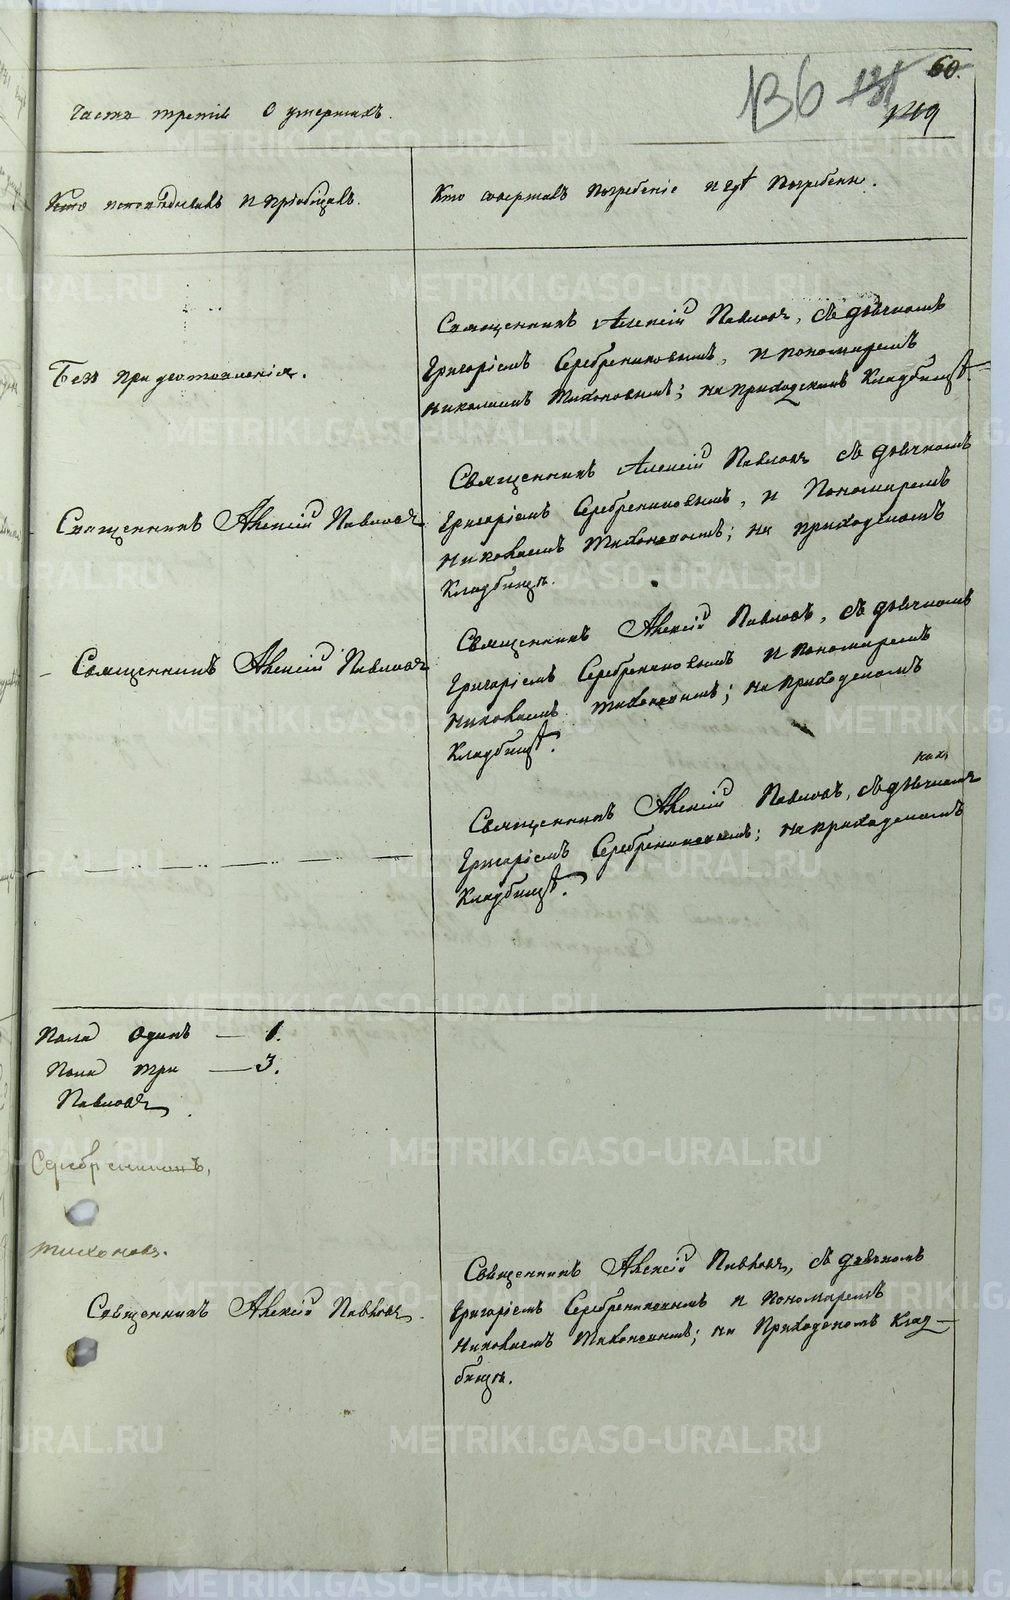 60.
136 131
129
Часть третія О умершихъ.
Кто исповѣдывалъ и пріобщалъ.
Кто совершалъ погребеніе и гдѣ погребены.
Священникъ Алексій Павловъ, съ дьячкомъ
Григоріемъ Серебрениковымъ, и пономаремъ
Николаемъ Тихоновымъ; на приходскомъ кладбищѣ.
Безъ
Священникъ Алексій Павловъ съ дьячкомъ
Григоріемъ Серебрениковымъ, и Пономаремъ
Николаемъ Тихоновымъ; на приходскомъ
Кладбищѣ.
Священникъ Алексій Павловъ
Священникъ Алексій Павловъ, съ дьячкомъ
Григоріемъ Серебрениковымъ и пономаремъ
Николаемъ Тихоновымъ; на приходскомъ
Кладбищѣ.
Священникъ Алексій Павловъ
Священникъ Алексій Павловъ, съ дьячкомъ
Григоріемъ Серебрениковымъ; на приходскомъ
Кладбищѣ.
Пола Одинъ — 1.
Пола три — 3.
Павловъ
Серебрениковъ,
Тихоновъ.
Священникъ Алексій Павловъ, съ дьячкомъ
Григоріемъ Серебрениковымъ и Пономаремъ
Николаемъ Тихоновымъ; на Приходскомъ Клад-
бищѣ.
Священникъ Алексій Павловъ.
METRIKI.GASO-URAL.RU